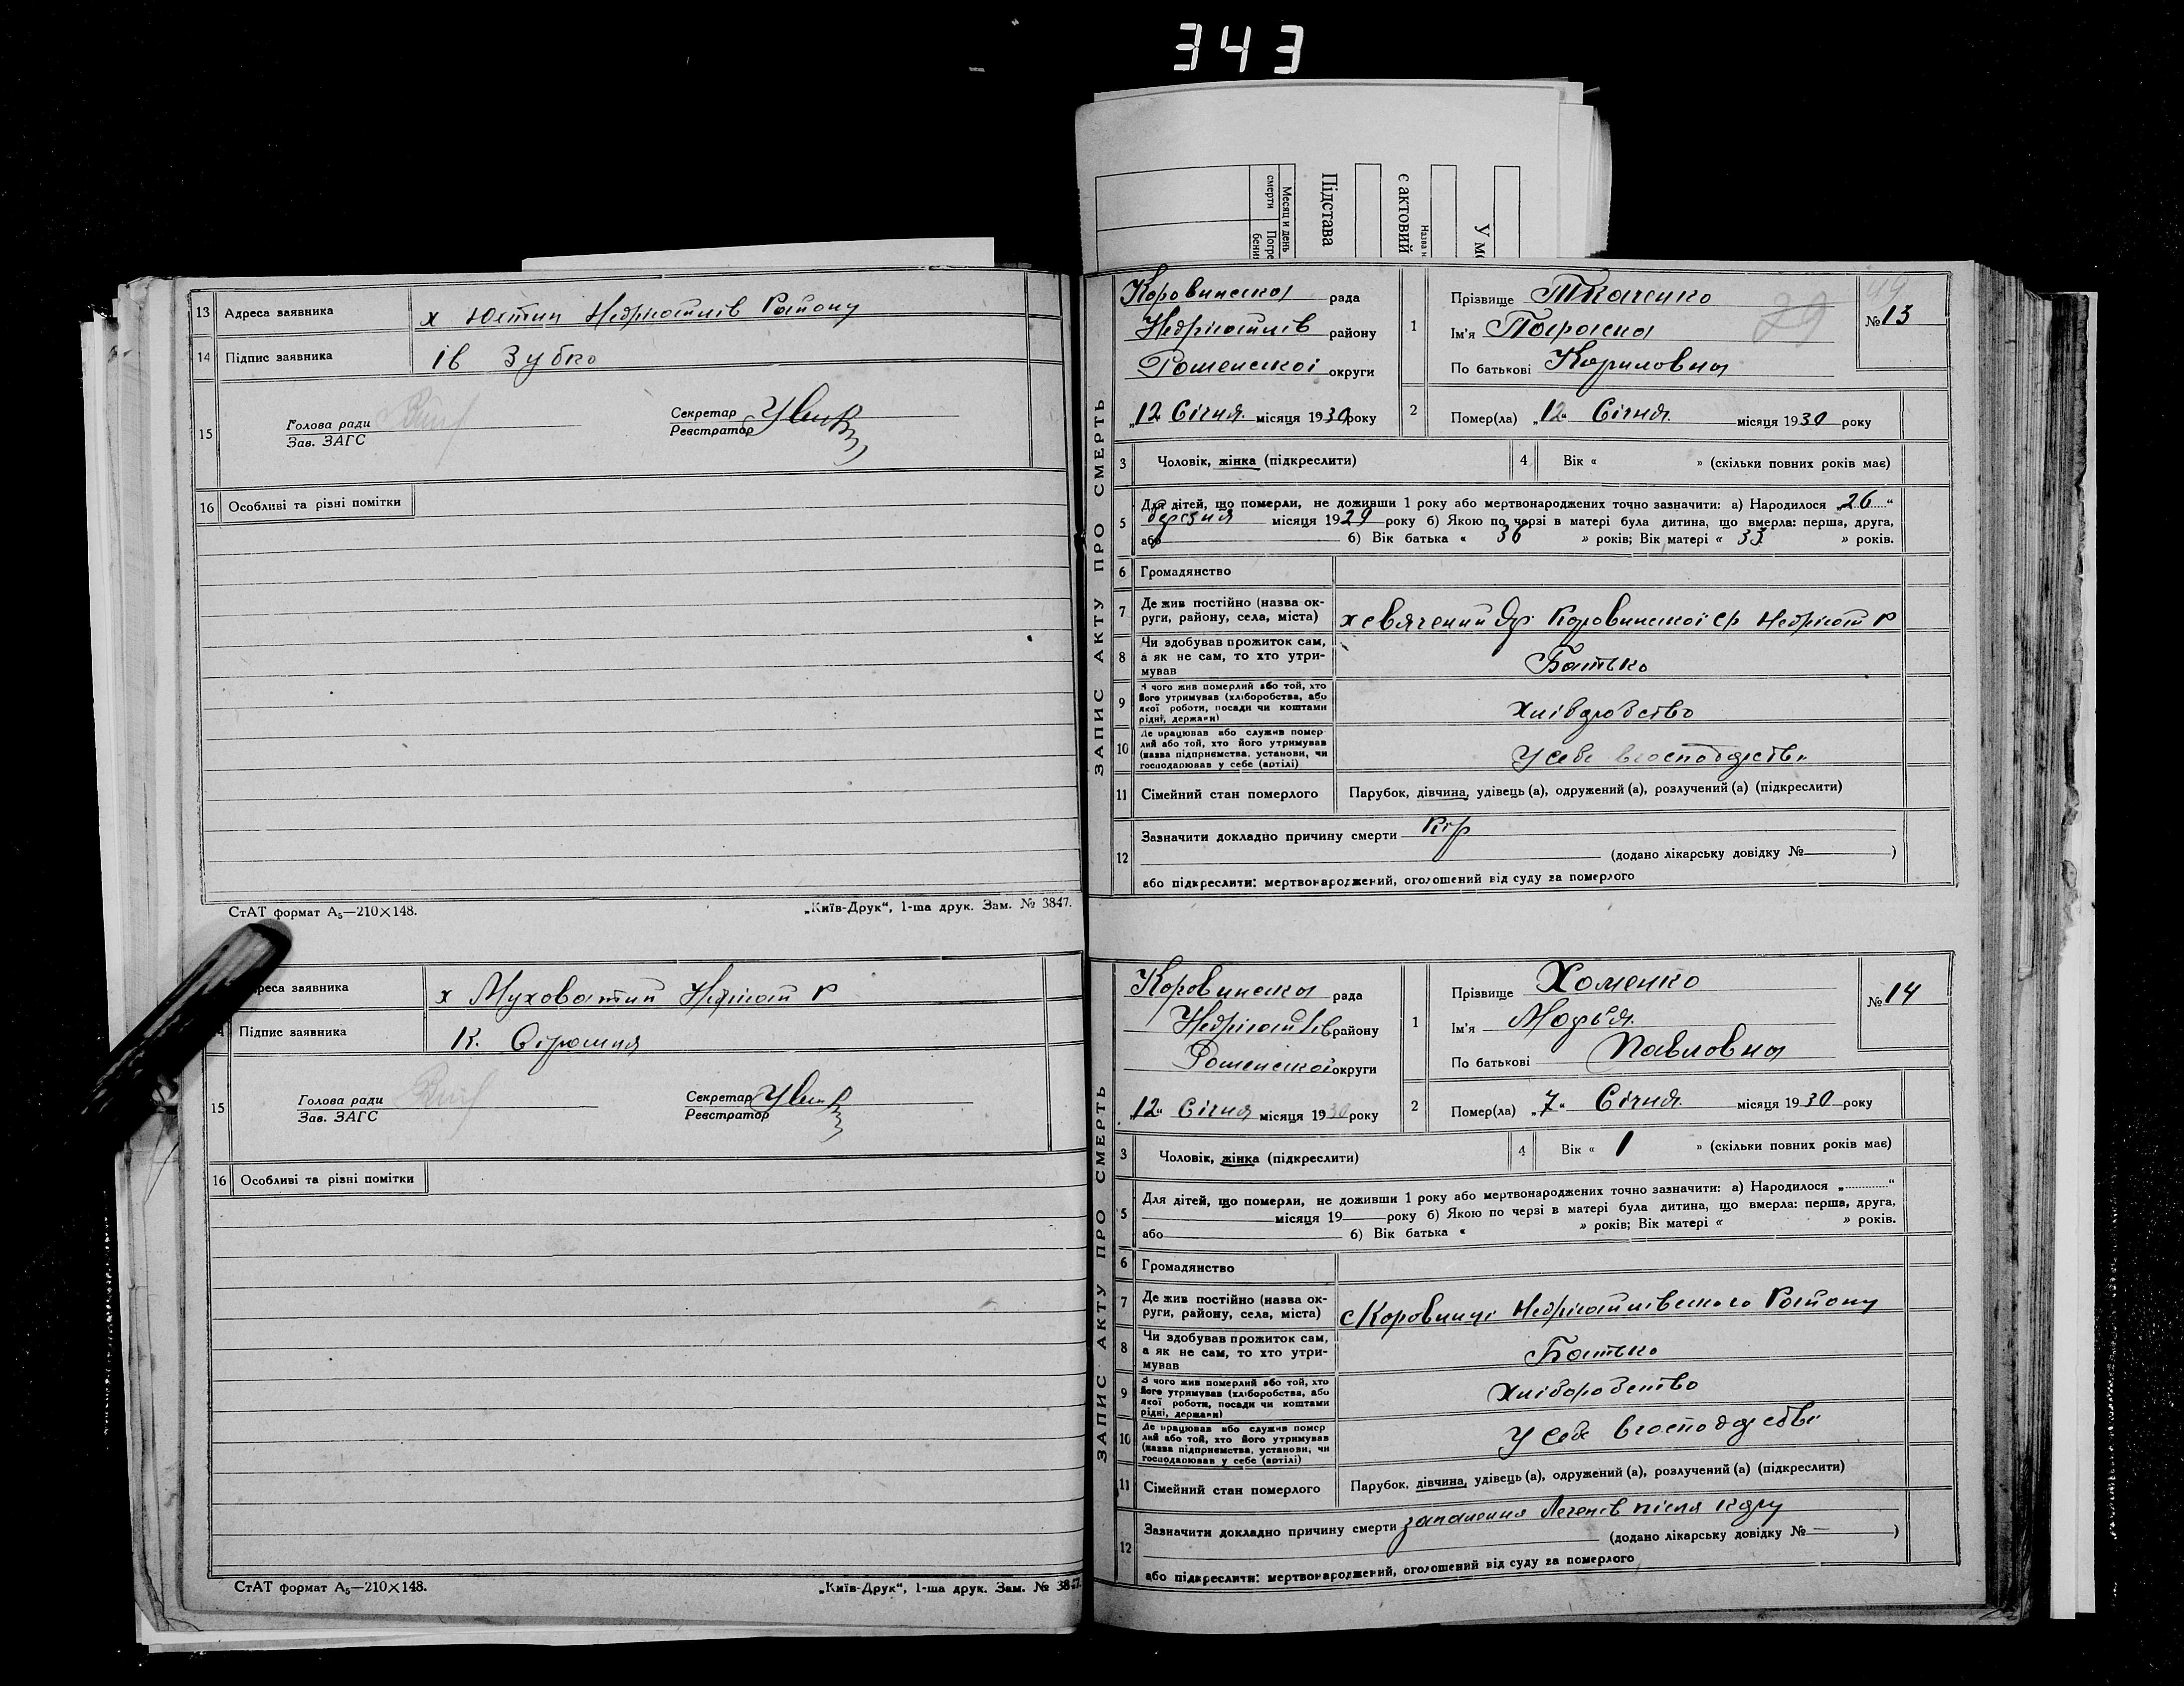 343
Месяц и день
смерти
Погре
бения
Підстава
є актовий
Назва н
У м
13 Адреса заявника х Юхтин Недригайлів Району
14 Підпис заявника Ів Зубко
15 Голова ради
Зав. ЗАГС
Секретар
Реєстратор
16 Особливі та різні помітки
СтАТ формат А₅—210×148. „Київ-Друк“, 1-ша друк. Зам. № 3847.
реса заявника х Муховатий Недригай Р
4 Підпис заявника К.
15 Голова ради
Зав. ЗАГС
Секретар
Реєстратор
16 Особливі та різні помітки
СтАТ формат А₅—210×148. „Київ-Друк“, 1-ша друк. Зам. № 3847.
ЗАПИС АКТУ ПРО СМЕРТЬ
Коровинська рада
Недригайлів району
Роменської округи
„12 Січня місяця 1930 року
1 Прізвище Ткаченко
Ім'я Параска
По батькові Кириловна
29
№ 13
2 Помер(ла) „12“ Січня місяця 1930 року
3 Чоловік, жінка (підкреслити) 4 Вік « » (скільки повних років має)
5 Для дітей, що померли, не доживши 1 року або мертвонароджених точно зазначити: а) Народилося „26“
березня місяця 1929 року б) Якою по черзі в матері була дитина, що вмерла: перша, друга,
або б) Вік батька « 36 » років; Вік матері « 33 » років.
6 Громадянство
7 Де жив постійно (назва ок-
руги, району, села, міста) х Свячений Яр Коровинської С/р Недригай Р
8 Чи здобував прожиток сам,
а як не сам, то хто утри-
мував Батько
9 З чого жив померлий або той, хто
його утримував (хліборобства, або
якої роботи, посади чи коштами
рідні, держави) Хліборобство
10 Де працював або служив помер
лий або той, хто його утримував
(назва підприємства, установи, чи
господарював у себе (артілі) У себе
11 Сімейний стан померлого Парубок, дівчина, удівець (а), одружений (а), розлучений (а) (підкреслити)
12 Зазначити докладно причину смерти Кір
(додано лікарську довідку № )
або підкреслити: мертвонароджений, оголошений від суду за померлого
ЗАПИС АКТУ ПРО СМЕРТЬ
Коровинська рада
Недригайлів району
Роменської округи
„12“ Січня місяця 1930 року
1 Прізвище Хоменко
Ім'я Мар'я
По батькові Павловна
№ 14
2 Помер(ла) „7“ Січня місяця 1930 року
3 Чоловік, жінка (підкреслити) 4 Вік « 1 » (скільки повних років має)
5 Для дітей, що померли, не доживши 1 року або мертвонароджених точно зазначити: а) Народилося „ “
місяця 19 року б) Якою по черзі в матері була дитина, що вмерла: перша, друга,
або б) Вік батька « » років; Вік матері « » років.
6 Громадянство
7 Де жив постійно (назва ок-
руги, району, села, міста) с Коровинці Недригайлівського Району
8 Чи здобував прожиток сам,
а як не сам, то хто утри-
мував Батько
9 З чого жив померлий або той, хто
його утримував (хліборобства, або
якої роботи, посади чи коштами
рідні, держави) Хліборобство
10 Де працював або служив помер
лий або той, хто його утримував
(назва підприємства, установи, чи
господарював у себе (артілі) У себе
11 Сімейний стан померлого Парубок, дівчина, удівець (а), одружений (а), розлучений (а) (підкреслити)
12 Зазначити докладно причину смерти запалення Легенів після кору
(додано лікарську довідку № — )
або підкреслити: мертвонароджений, оголошений від суду за померлого